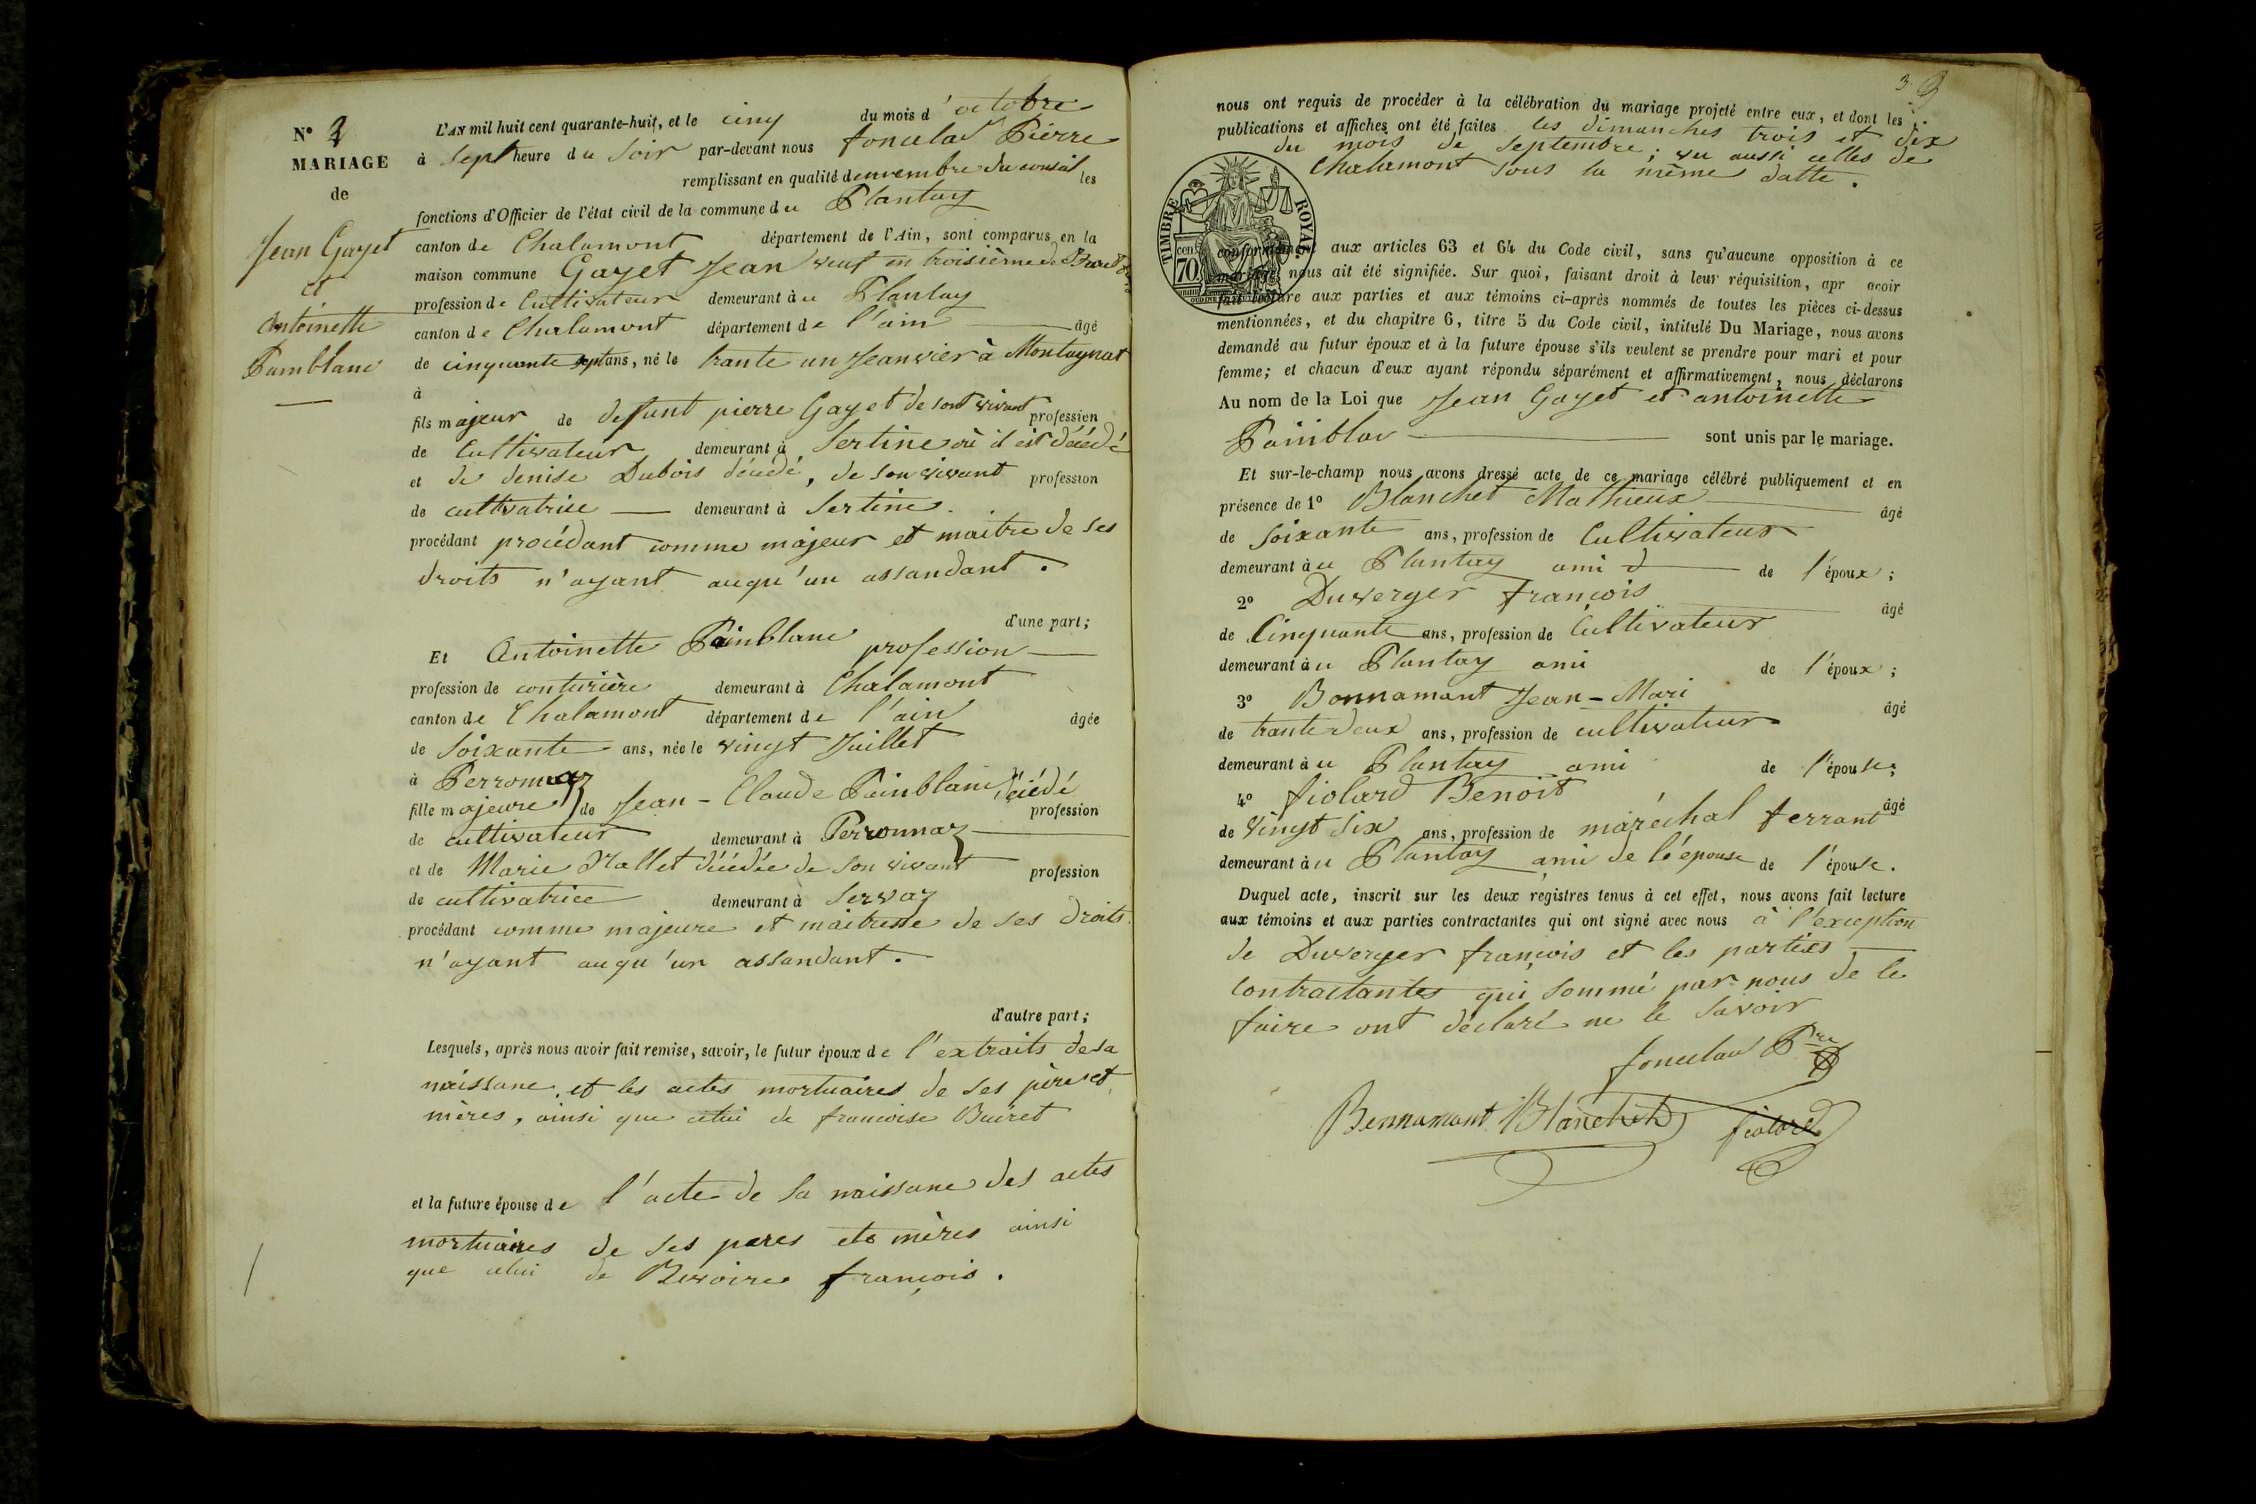 N° 3
MARIAGE
de
Jean Gayet
et
Antoinette
Painblanc
L'AN mil huit cent quarante-huit, et le cinq du mois d'octobre
à sept heure du soir par-devant nous Pierre
remplissant en qualité de membre du conseil les
fonctions d'Officier de l'état civil de la commune du Plantay
canton de Chalamont département de l'Ain, sont comparus en la
maison commune Gayet Jean veuf en troisième de
profession de Cultivateur demeurant au Plantay
canton de Chalamont département de l'ain âgé
de cinquante sept ans, né le trante un Jeanvier à Montagnat
à
fils majeur de defunt pierre Gayet de sont vivant profession
de Cultivateur demeurant à Sertine où il est décédé
et de denise Dubois décedé, de son vivant profession
de cultivatrice demeurant à Sertine.
procédant procédant comme majeur et maitre de ses
droits n'ayant auqu'un assandant.
d'une part;
Et Antoinette Painblanc profession
profession de couturière demeurant à Chalamont
canton de Chalamont département de l'ain âgée
de Soixante ans, née le vingt Juillet
à Perronnaz
fille majeure de Jean-Claude Painblanc décédé
profession
de cultivateur demeurant à Perronnaz
et de Marie Mallet décédée de son vivant profession
de cultivatrice demeurant à Servaz
procédant comme majeure et maitresse de ses droits
n'ayant auqu'un assandant.
d'autre part;
Lesquels, après nous avoir fait remise, savoir, le futur époux de l'extraits de sa
naissance et les actes mortuaires de ses père et
mères, ainsi que celui de francoise Buiret
et la future épouse de l'acte de sa naissance des actes
mortuaires de ses peres ete mères ainsi
que celui de Bevoire françois.
3
nous ont requis de procéder à la célébration du mariage projeté entre eux, et dont les
publications et affiches ont été faites les dimanches trois et dix
du mois de septembre; vu aussi celles de
Chalamont sous la mème datte.
TIMBRE ROYAL
70 cen
conformément aux articles 63 et 64 du Code civil, sans qu'aucune opposition à ce
mariage nous ait été signifiée. Sur quoi, faisant droit à leur réquisition, apr avoir
fait lecture aux parties et aux témoins ci-après nommés de toutes les pièces ci-dessus
mentionnées, et du chapitre 6, titre 5 du Code civil, intitulé Du Mariage, nous avons
demandé au futur époux et à la future épouse s'ils veulent se prendre pour mari et pour
femme; et chacun d'eux ayant répondu séparément et affirmativement, nous déclarons
Au nom de la Loi que Jean Gayet et antoinette
Painblan sont unis par le mariage.
Et sur-le-champ nous avons dressé acte de ce mariage célébré publiquement et en
présence de 1° Blanchet Mathieux âgé
de Soixante ans, profession de Cultivateur
demeurant au Plantay ami d de l'époux;
2° Duverger françois âgé
de Cinquante ans, profession de Cultivateur
demeurant au Plantay ami de l'époux;
3° Bonnamant Jean-Mari âgé
de trante deux ans, profession de cultivateur
demeurant au Plantay ami de l'épouse;
4° fiolard Benoit âgé
de vingt six ans, profession de maréchal ferrant
demeurant au Plantay ami de l'épouse de l'épouse.
Duquel acte, inscrit sur les deux registres tenus à cet effet, nous avons fait lecture
aux témoins et aux parties contractantes qui ont signé avec nous à l'exception
de Duverger françois et les parties
contractantes qui sommé par nous de le
faire ont déclaré ne le savoir
Bennamant Blanchet fiolard